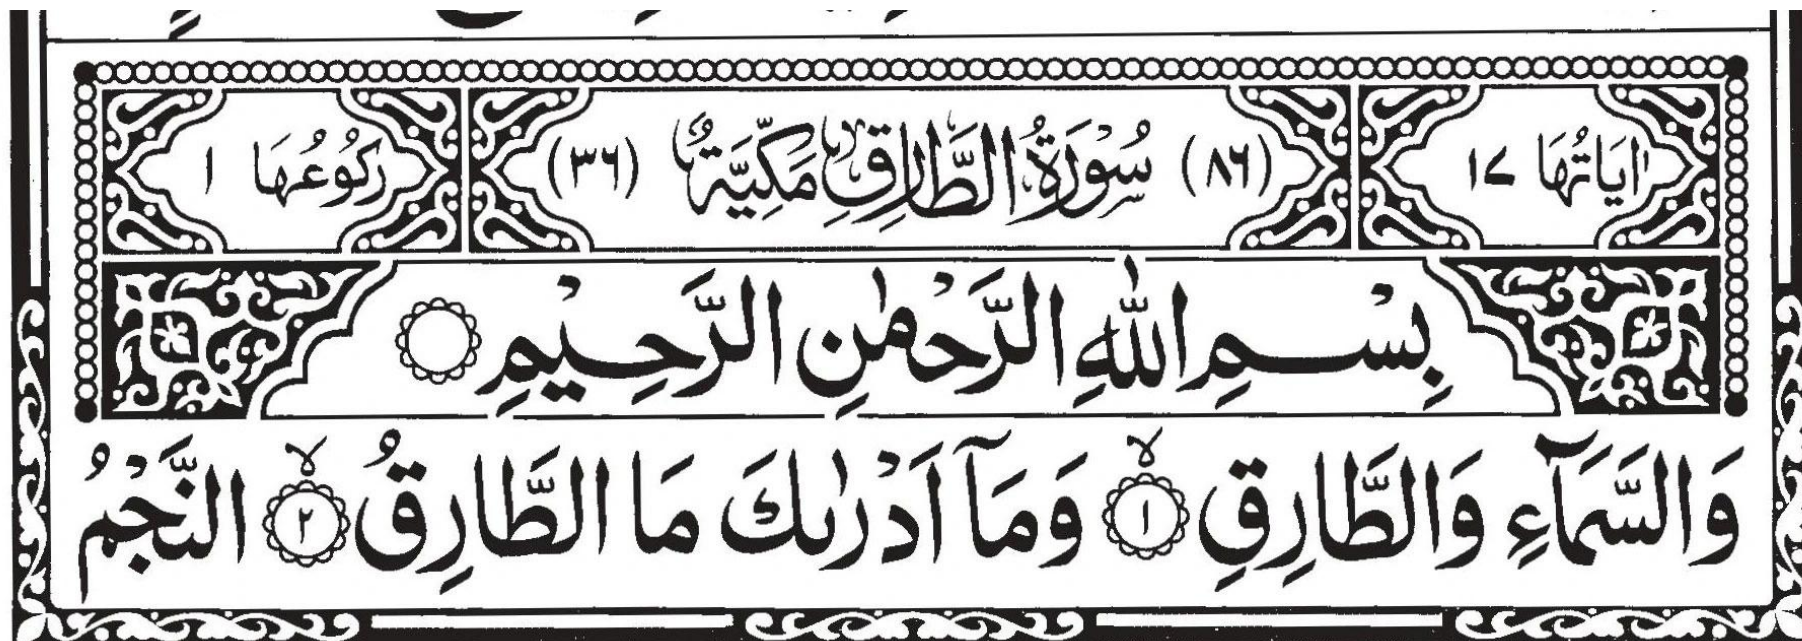 اٰيَاتُهَا ١٧ (٨٦) سُوْرَةُ الطَّارِقِ مَكِّيَّةٌ (٣٦) رُكُوْعُهَا ١
بِسْمِ اللّٰهِ الرَّحْمٰنِ الرَّحِيْمِ
وَالسَّمَآءِ وَالطَّارِقِ ۙ﴿١﴾ وَمَآ اَدْرٰىكَ مَا الطَّارِقُ ۙ﴿٢﴾ النَّجْمُ